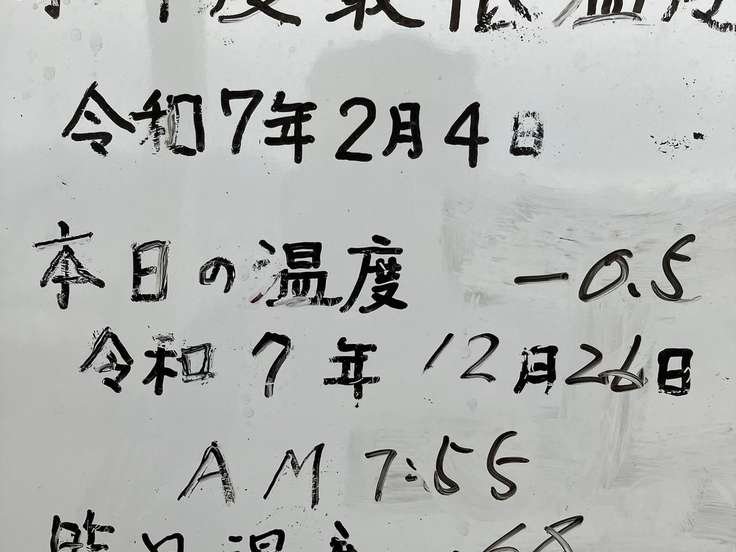 年度最低温度
令和7年2月4日
本日の温度 -0.5
令和7年12月26日
AM 7:55
昨日温度